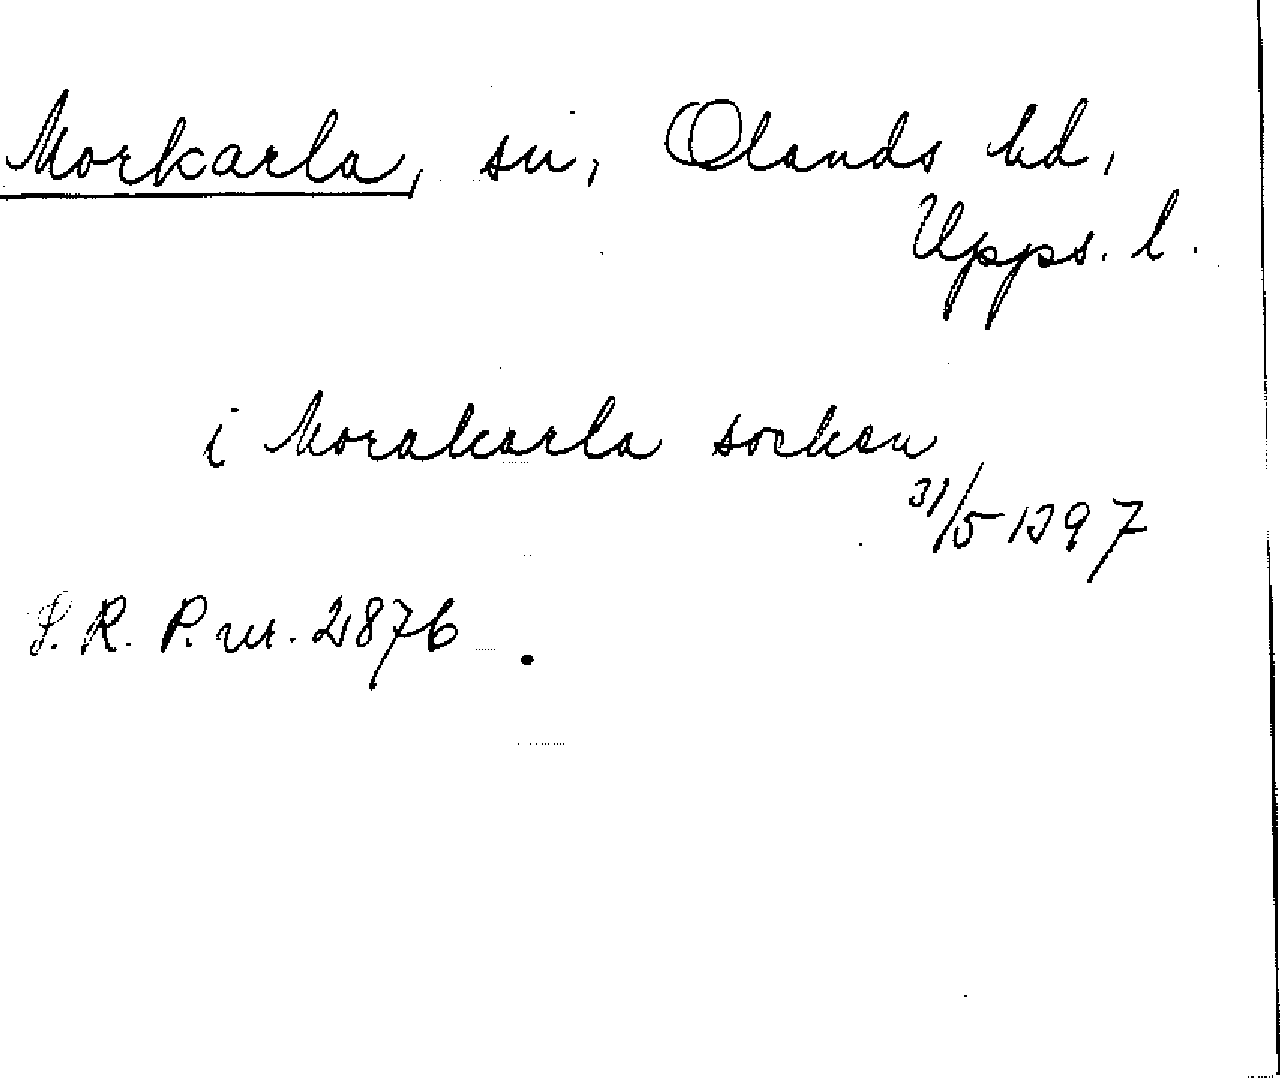 Morkarla, sn, Olands hd,
Upps. l.
i Morakarla socken
31/5 1397
S.R.P. nr. 2876.